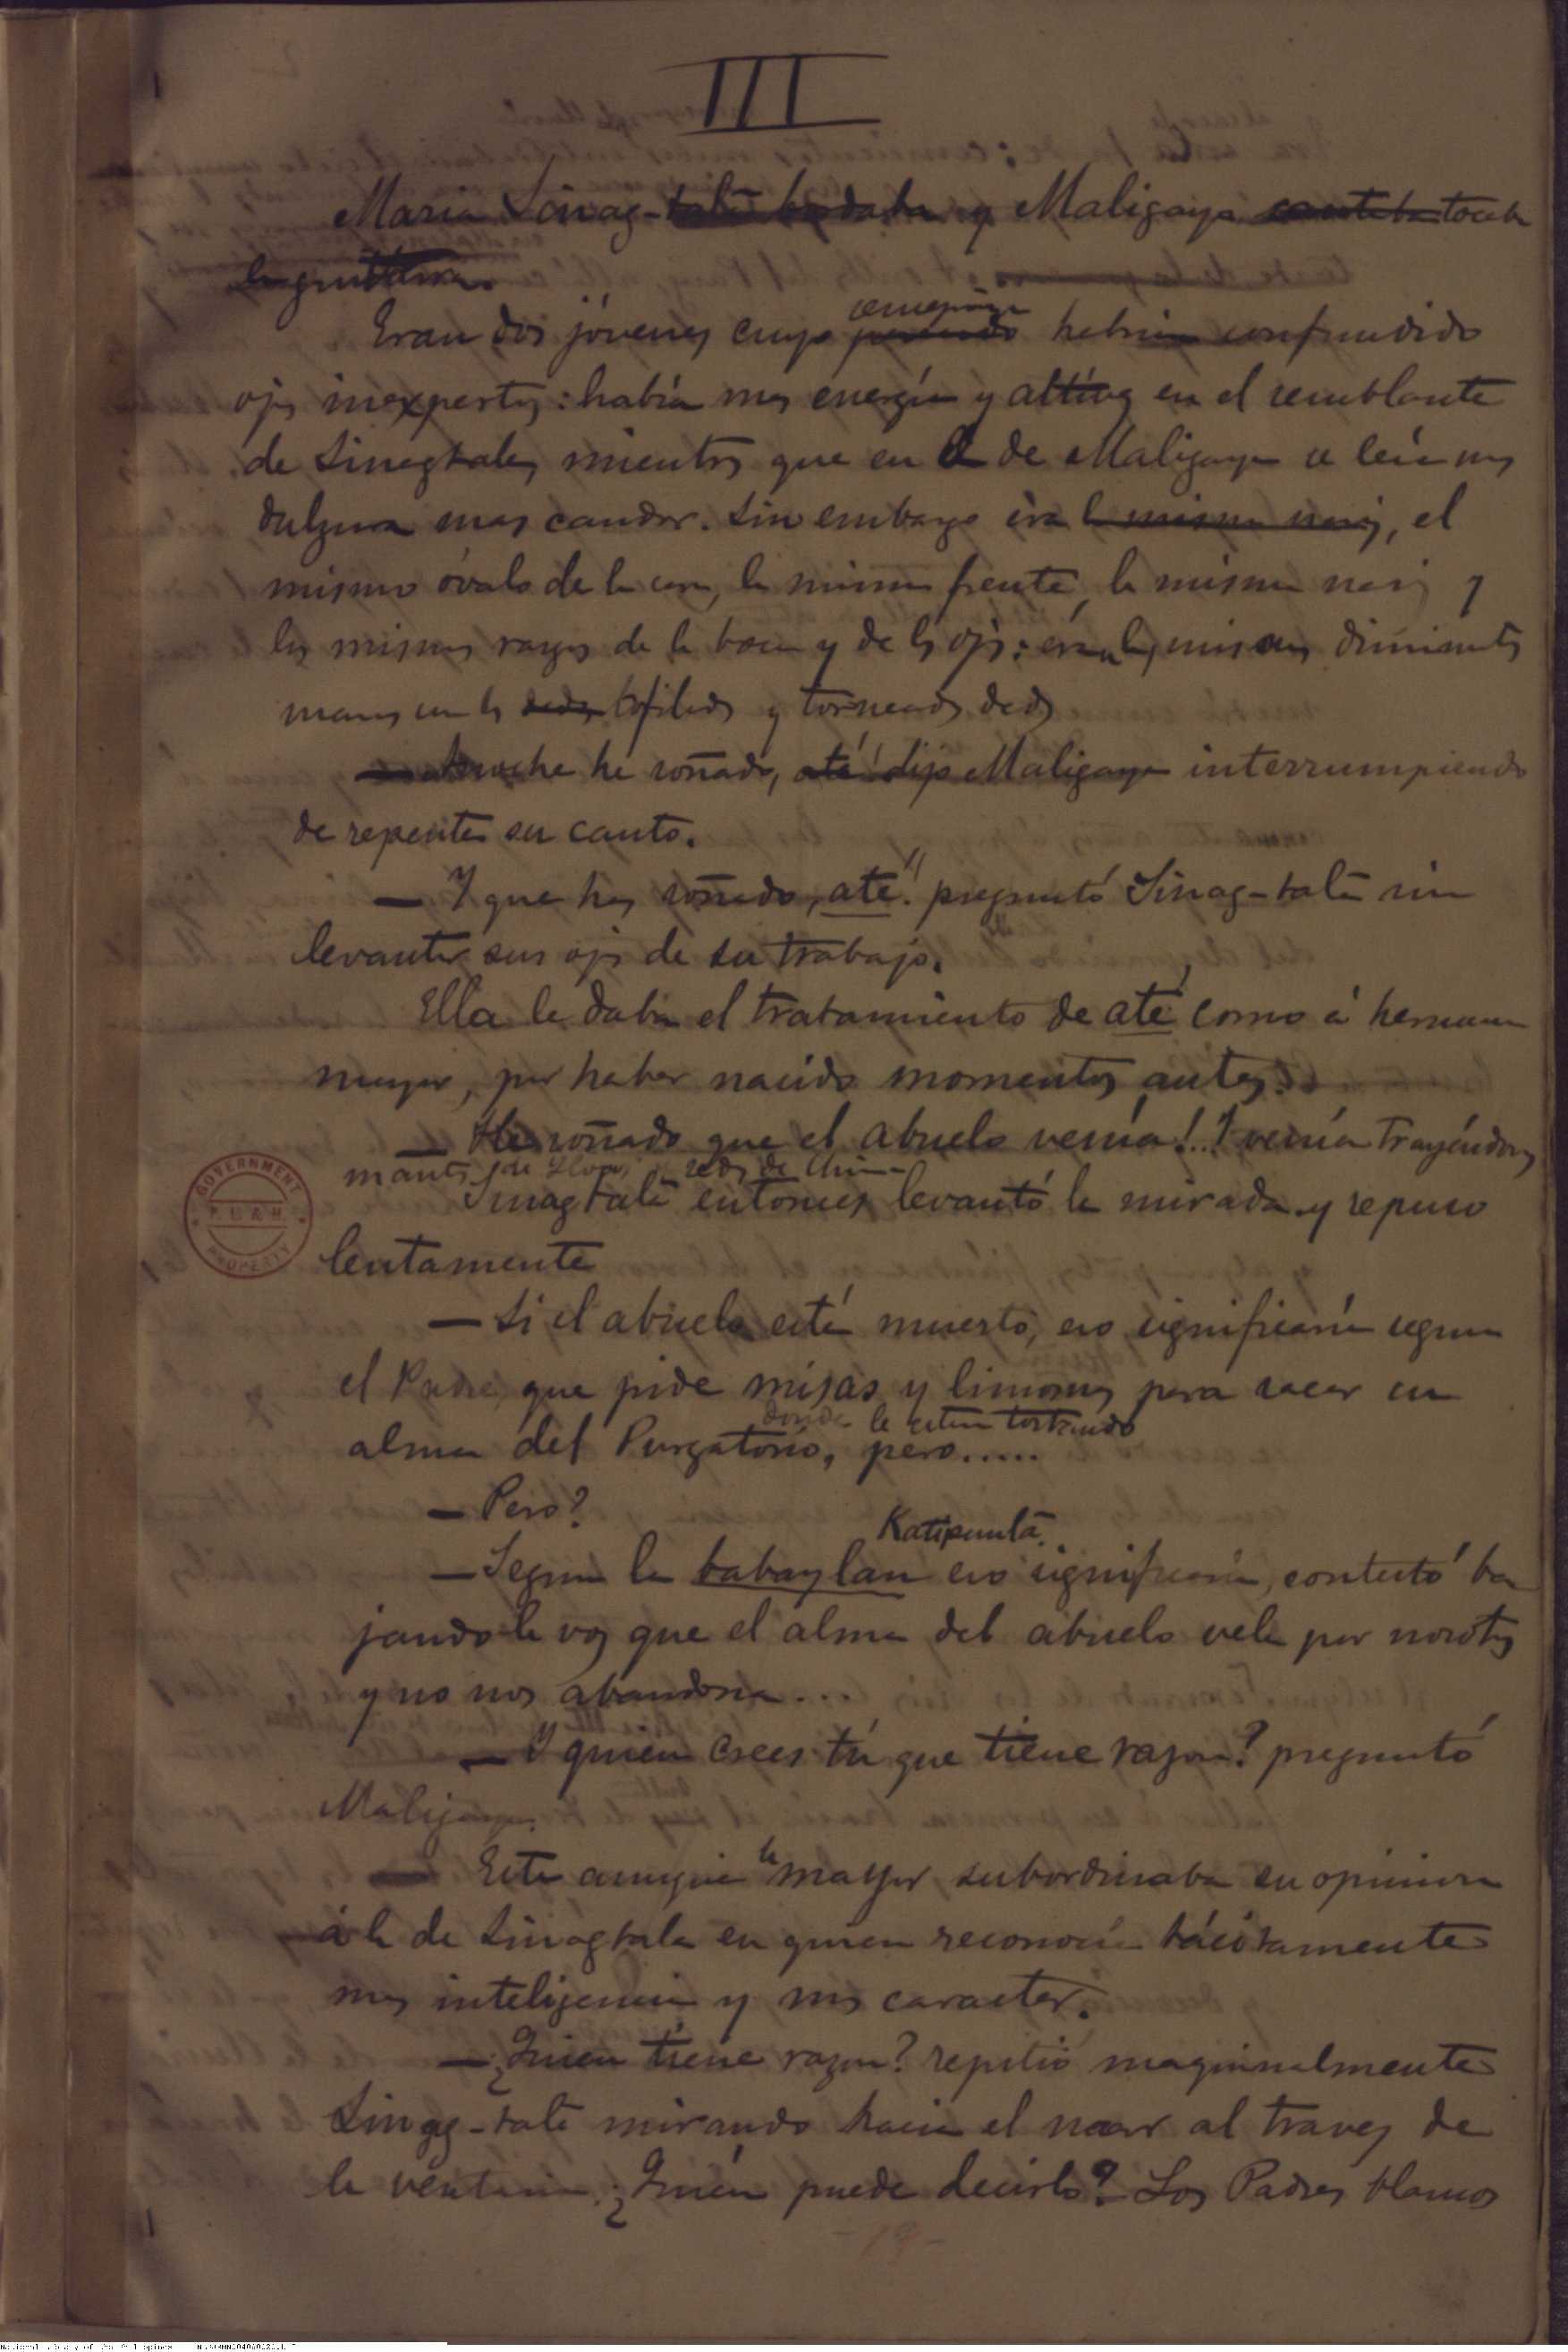 III
Maria Sinag-talà bordaba y Maligaya cantaba tocaba
la guitarra.
semejanza
Eran dos jóvenes cuyo parecido habria confundido
ojos inexpertos: había mas energía y altivez en el semblante
de Sinagtala, mientras que en el de Maligaya se leía mas
dulzura mas candor. Sin embargo era la misma nariz, el
mismo óvalo de la cara, la misma frente, la misma nariz y
los mismos rasgos de la boca y de los ojos: eran las mismas diminutas
manos con los dedos afilados y torneados dedos
— Anoche he soñado, até! dijo Maligaya interrumpiendo
de repente su canto.
— Y que has soñado, até? preguntó Sinag-talà sin
levantar sus ojos de su trabajo.
Ella le daba el tratamiento de até como á hermana
mayor, por haber nacido momentos antes.
— He soñado que el abuelo venía!... Y venía trayéndonos
mantas de Ilocos, sedas de China
Sinagtalà entonces levantó la mirada y repuso
lentamente
— Si el abuelo está muerto, eso significaría segun
el Padre que pide misas y limosnas para sacar su
donde le estan tostando
alma del Purgatorio, pero.....
— Pero?
Katipunlà
— Segun la babaylan eso significaría, contestó ba
jando la voz que el alma del abuelo vela por nosotras
y no nos abandona...
— Y quien crees tú que tiene razon? preguntó
Maligaya.
— Esta aunque la mayor subordinaba su opinion
á la de Sinagtala en quien reconocía tácitamente
mas inteligencia y mas caracter.
— ¿Quien tiene razon? repitió maquinalmente
Sinag-talà mirando hacia el mar al traves de
la ventana. ¿Quién puede decirlo? Los Padres blancos
- 19 -
GOVERNMENT
P. L. & M.
PROPERTY